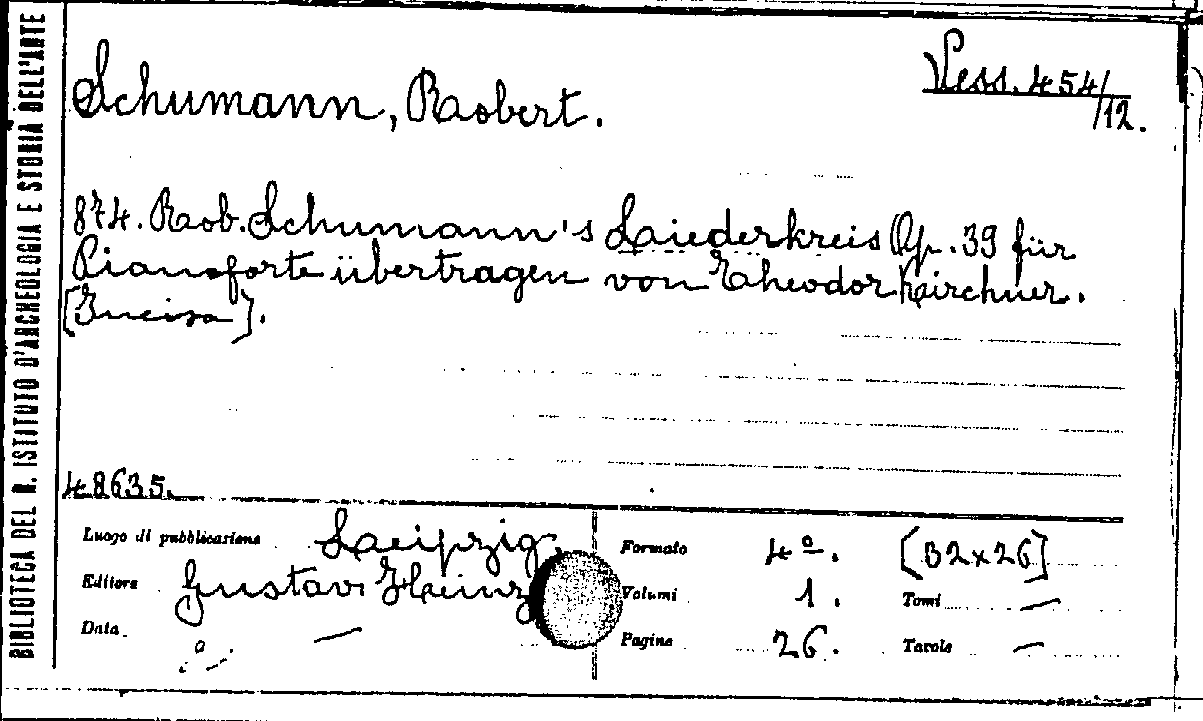 BIBLIOTECA DEL R. ISTITUTO D'ARCHEOLOGIA E STORIA DELL'ARTE
Vess. 454/12.
Schumann, Robert.
874. Rob. Schumann's Liederkreis Op. 39 für
Pianoforte übertragen von Theodor Kirchner.
[Incisa].
48635.
Luogo di pubblicazione Leipzig,
Editore Gustav Heinz
Data —
Formato 4º. [32x26]
Volumi 1. Tomi —
Pagine 26. Tavole —